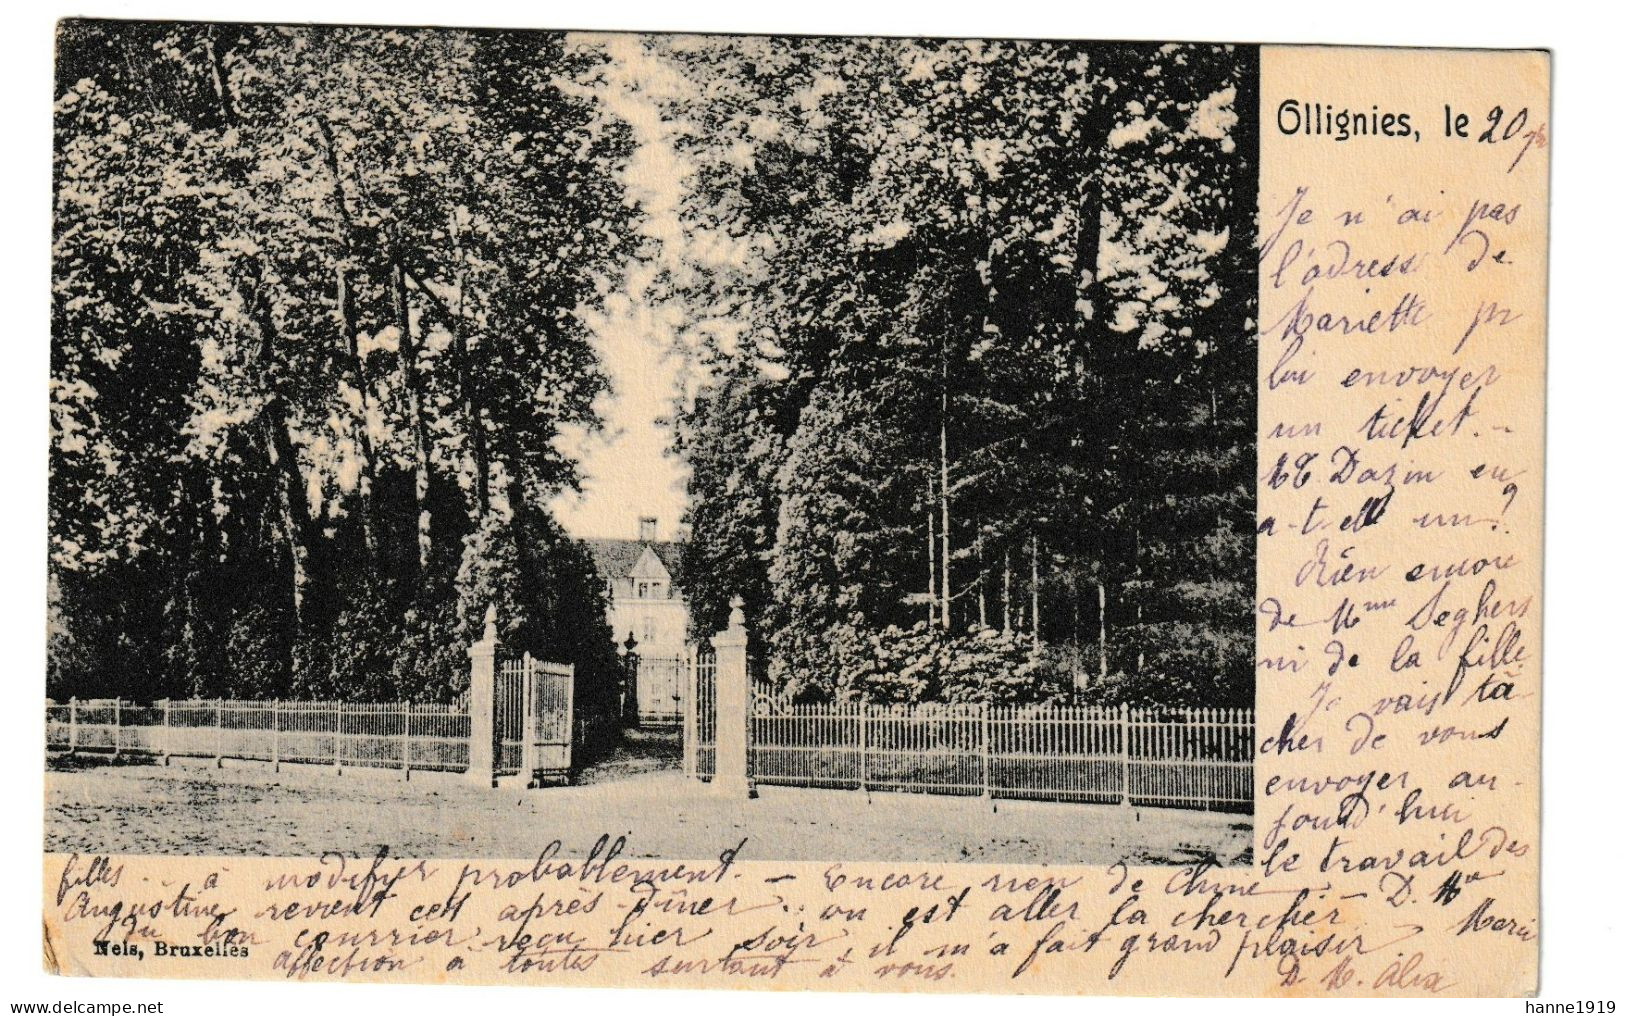 Ollignies, le 20
Je n'ai pas
l'adresse de
Mariette pr
lui envoyer
un ticket. -
M. Dazin en
a-t-elle un?
Rien encore
de Mme Seghers
ni de la fille
Je vais tâ
cher de vous
envoyer au-
jourd'hui
le travail des
filles - à modifier probablement. - Encore rien de Chine - D. Ma
Augustine revient cet après-dîner. on est aller la chercher - Merci
du bon courrier reçu hier soir, il m'a fait grand plaisir -
Nels, Bruxelles
affection à toutes surtout à vous.
D. M. Alix
hanne1919